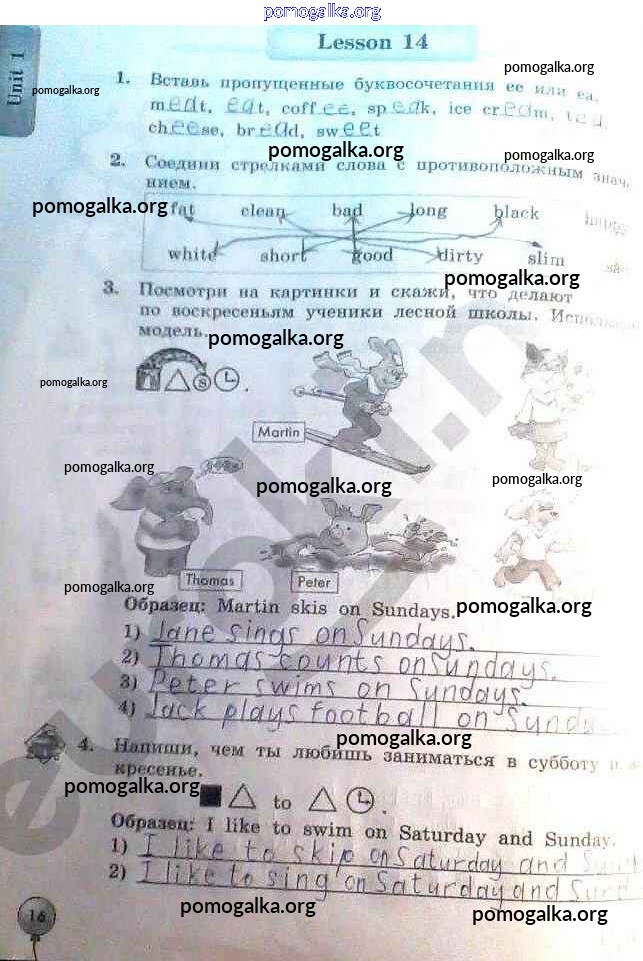 pomogalka.org
Lesson 14
Unit 1
pomogalka.org
pomogalka.org
1. Вставь пропущенные буквосочетания ee или ea.
meat, eat, coffee, speak, ice cream,
cheese, bread, sweet
pomogalka.org
pomogalka.org
2. Соедини стрелками слова с противоположным
нием.
pomogalka.org
fat clean bad long black happy
white short good dirty slim
pomogalka.org
3. Посмотри на картинки и скажи, что делают
по воскресеньям ученики лесной школы.
модель.
pomogalka.org
pomogalka.org
Martin
pomogalka.org
pomogalka.org
pomogalka.org
Thomas
Peter
pomogalka.org
Образец: Martin skis on Sundays.
pomogalka.org
1) Jane sings on Sundays.
2) Thomas counts on sundays.
3) Peter swims on Sundays.
4) Jack plays football on Sunda
pomogalka.org
4. Напиши, чем ты любишь заниматься в субботу и в
кресенье.
pomogalka.org
to .
Образец: I like to swim on Saturday and Sunday.
1) I like to skip on Saturday and
2) I like to sing on Saturday and
16
pomogalka.org
pomogalka.org